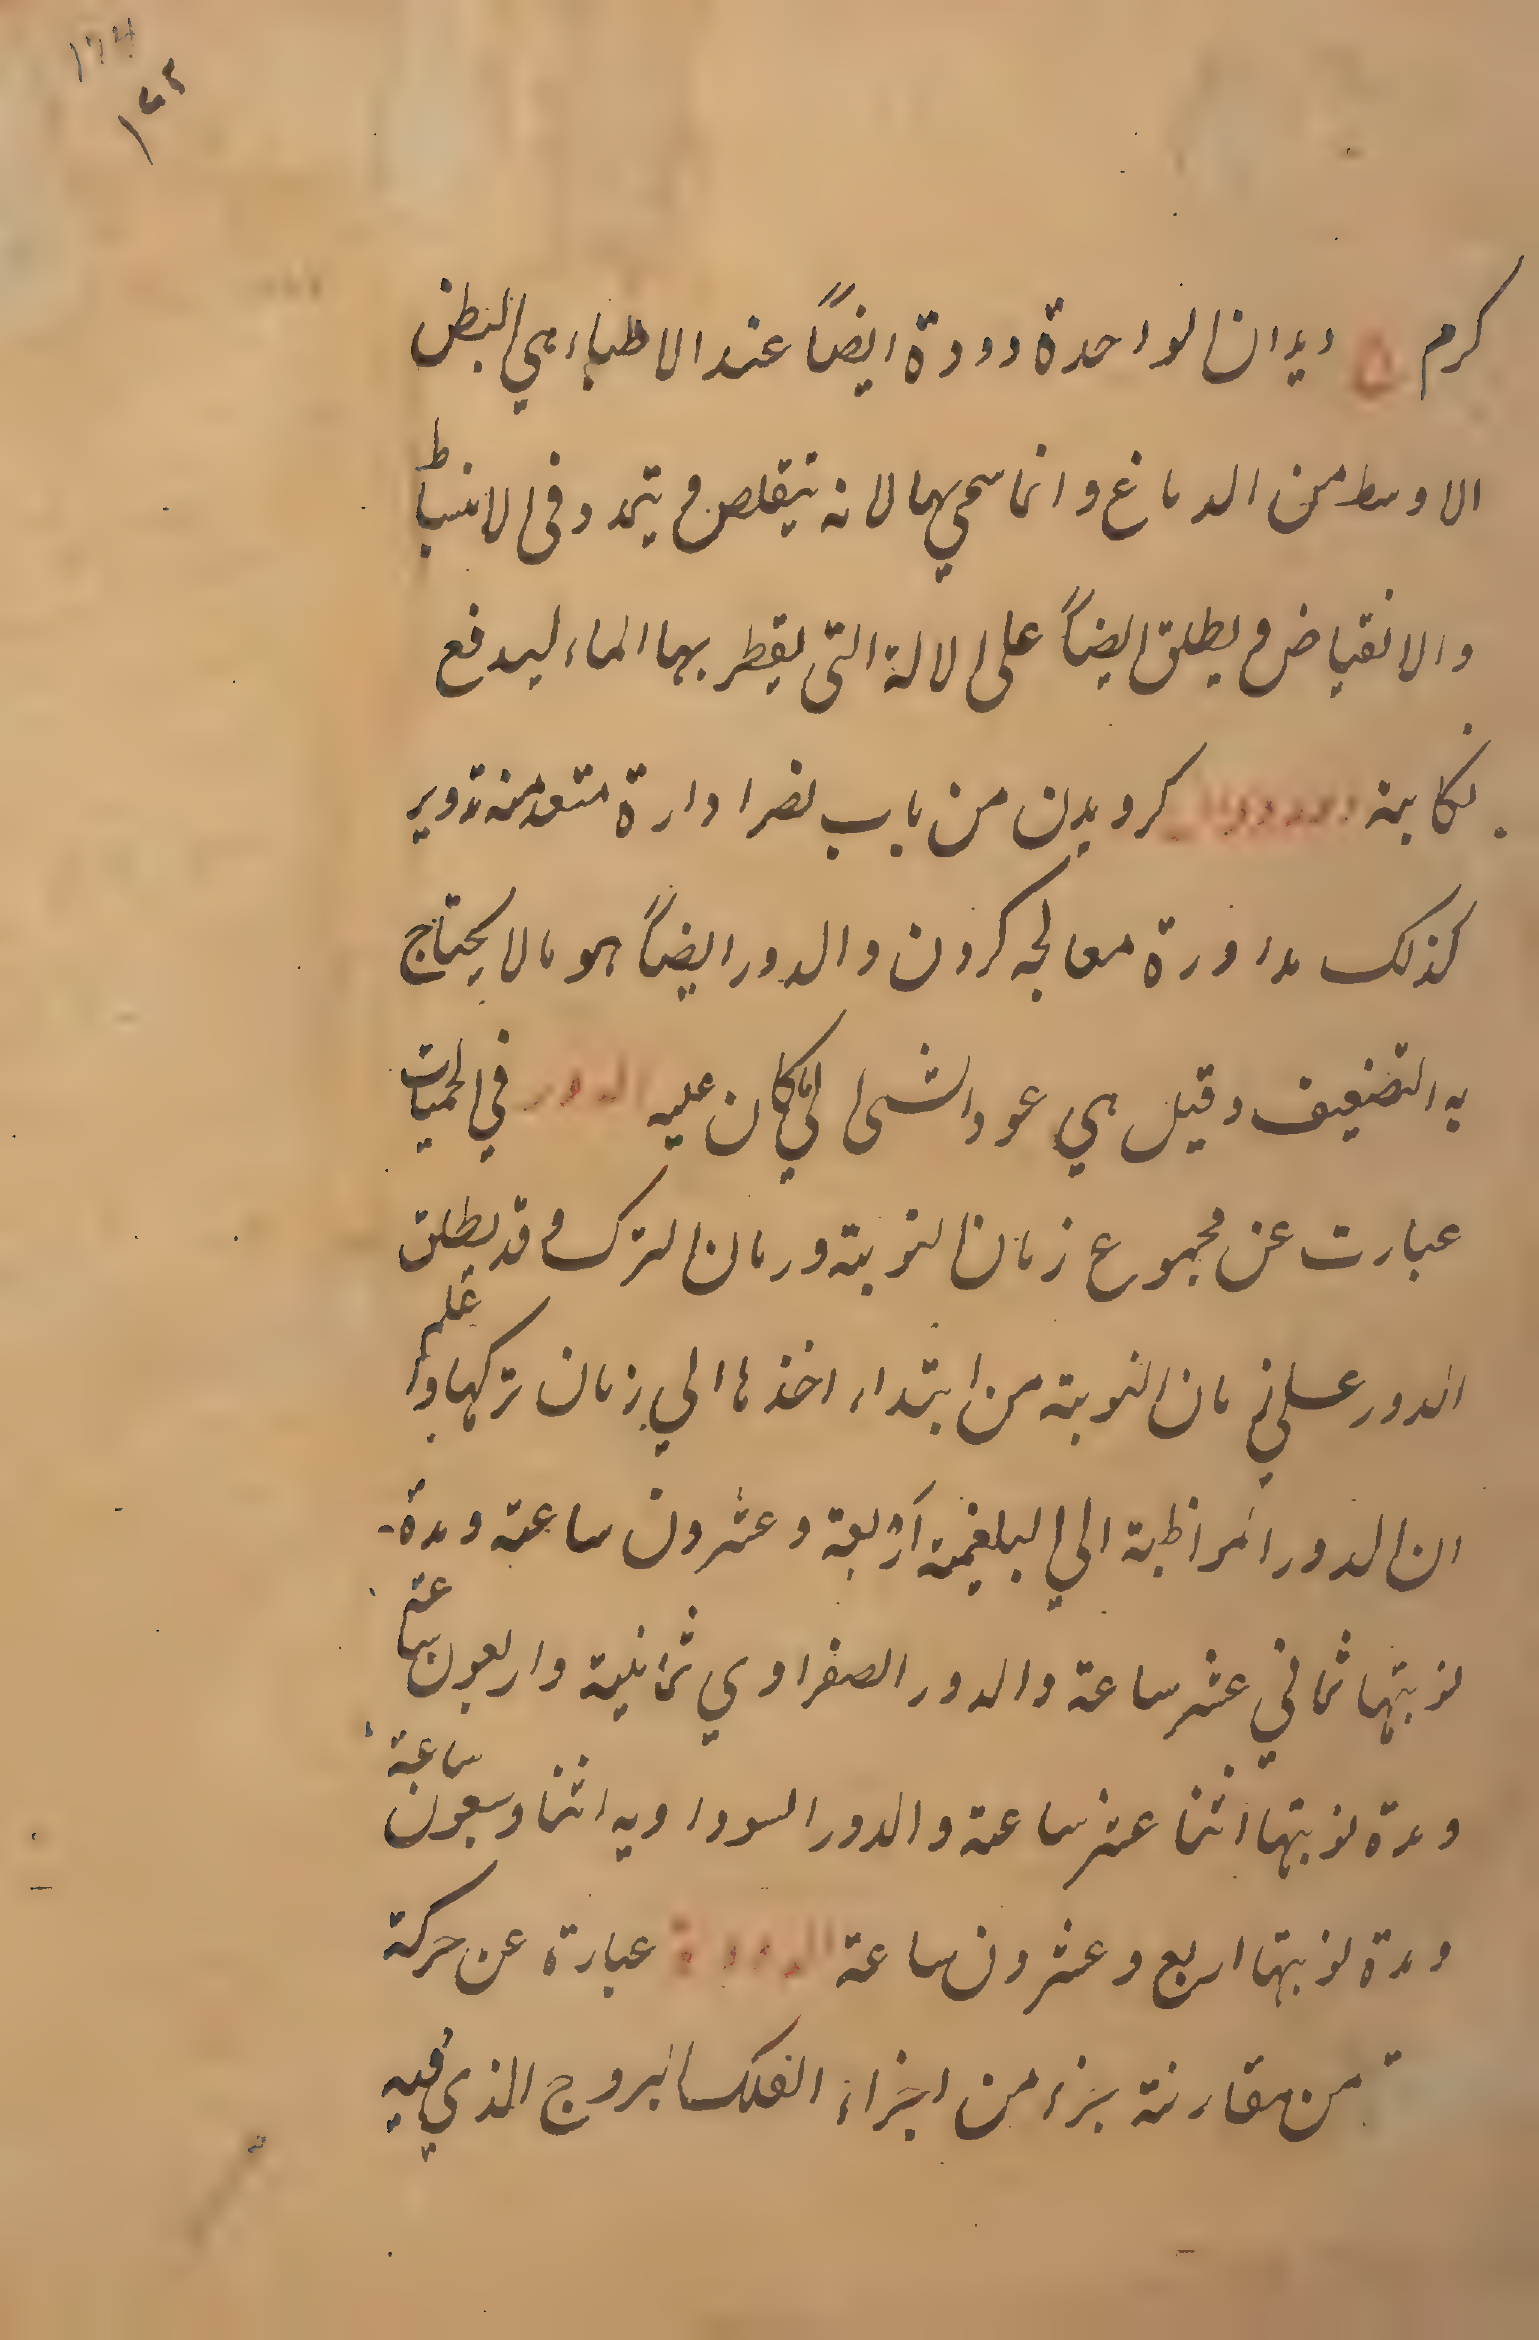 ۱۲۲
کرم ۵ دیدان الواحدة دودة ایضاً عند الاطباء هي البطن
الاوسط من الدماغ وانما سمي بها لانه یتقلص و یتمدد فی الانبساط
والانقباض و یطلق ایضاً علی الالة التی یقطر بها الماء لیدفع
نکایته کردیدن من باب نصر ادارة متعد منه تدویر
کذلک مداورة معالجه کردن والدور ایضاً هو ما لا یحتاج
به التضعیف وقیل هي عود الشی الي ما کان علیه الدور في الحمیات
عبارت عن مجموع زمان النوبة و زمان الترک و قد یطلق
الدور علي زمان النوبة من ابتداء اخذها الي زمان ترکها واعلم
ان الدور المواظبة الي البلغمیة اربعة و عشرون ساعة و مدة
نوبتها ثماني عشر ساعة والدور الصفراوي ثمانیة واربعون ساعة
ومدة نوبتها اثنا عشر ساعة والدور السوداویه اثنا وسبعون ساعة
ومدة نوبتها اربع وعشرون ساعة الدورة عبارة عن حرکة
من مقارنة جزء من اجزاء الفلک البروج الذي فیه